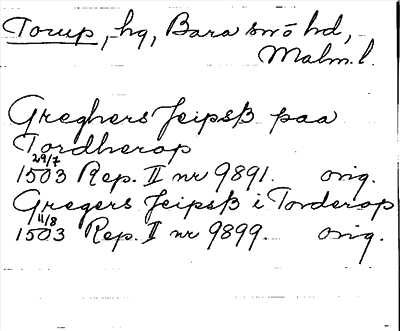 Torup, hg, Bara sn ō hd,
Malm. l.
Greghers Jeipsß paa
Tordherop
29/7
1503 Rep. II nr 9891. orig.
Gregers Jeipsß i Torderop
11/8
1503 Rep. II nr 9899. orig.